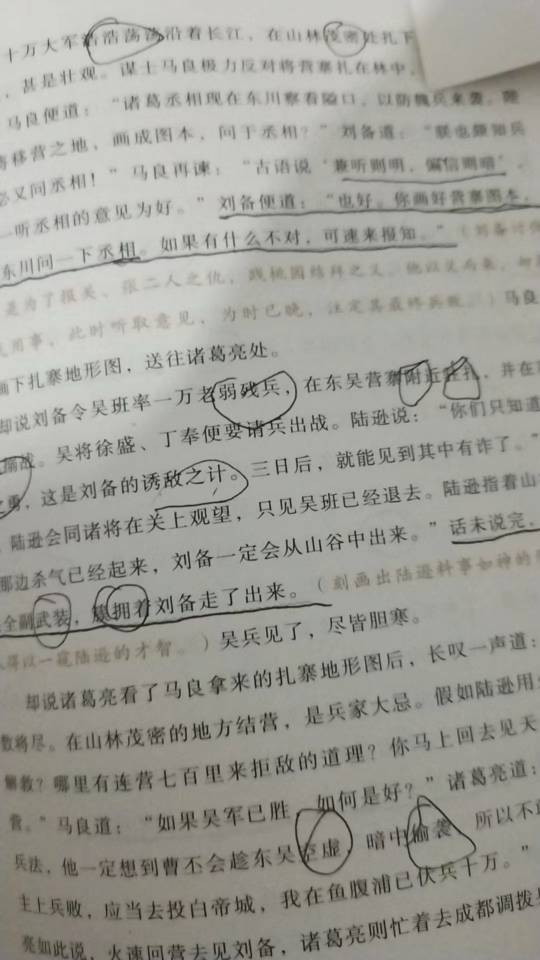 十万大军浩浩荡荡沿着长江，在山林茂密处扎下
，甚是壮观。谋士马良极力反对将营寨扎在林中，
马良便道：“诸葛丞相现在东川察看隘口，以防魏兵来袭，陛
将移营之地，画成图本，问于丞相？”刘备道：“朕也颇知兵
必又问丞相！”马良再谏：“古语说‘兼听则明，偏信则暗’，
一听丞相的意见为好。”刘备便道：“也好。你画好营寨图本，
东川问一下丞相。如果有什么不对，可速来报知。”（刘备讨伐
是为了报关、张二人之仇，践桃园结拜之义，他以
用事，此时听取意见，为时已晚，注定其最终兵败。）马良
画下扎寨地形图，送往诸葛亮处。
却说刘备令吴班率一万老弱残兵，在东吴营寨附近驻扎，并在
搦战。吴将徐盛、丁奉便要请兵出战。陆逊说：“你们只知道
之勇，这是刘备的诱敌之计。三日后，就能见到其中有诈了。”
陆逊会同诸将在关上观望，只见吴班已经退去。陆逊指着山
那边杀气已经起来，刘备一定会从山谷中出来。”话未说完，
全副武装，簇拥着刘备走了出来。（刻画出陆逊料事如神的
得以一窥陆逊的才智。）吴兵见了，尽皆胆寒。
却说诸葛亮看了马良拿来的扎寨地形图后，长叹一声道：
数将尽。在山林茂密的地方结营，是兵家大忌。假如陆逊用
解救？哪里有连营七百里来拒敌的道理？你马上回去见天
营。”马良道：“如果吴军已胜，如何是好？”诸葛亮道：
兵法，他一定想到曹丕会趁东吴空虚，暗中偷袭，所以不
主上兵败，应当去投白帝城，我在鱼腹浦已伏兵十万。”
亮如此说，火速回营去见刘备，诸葛亮则忙着去成都调拨